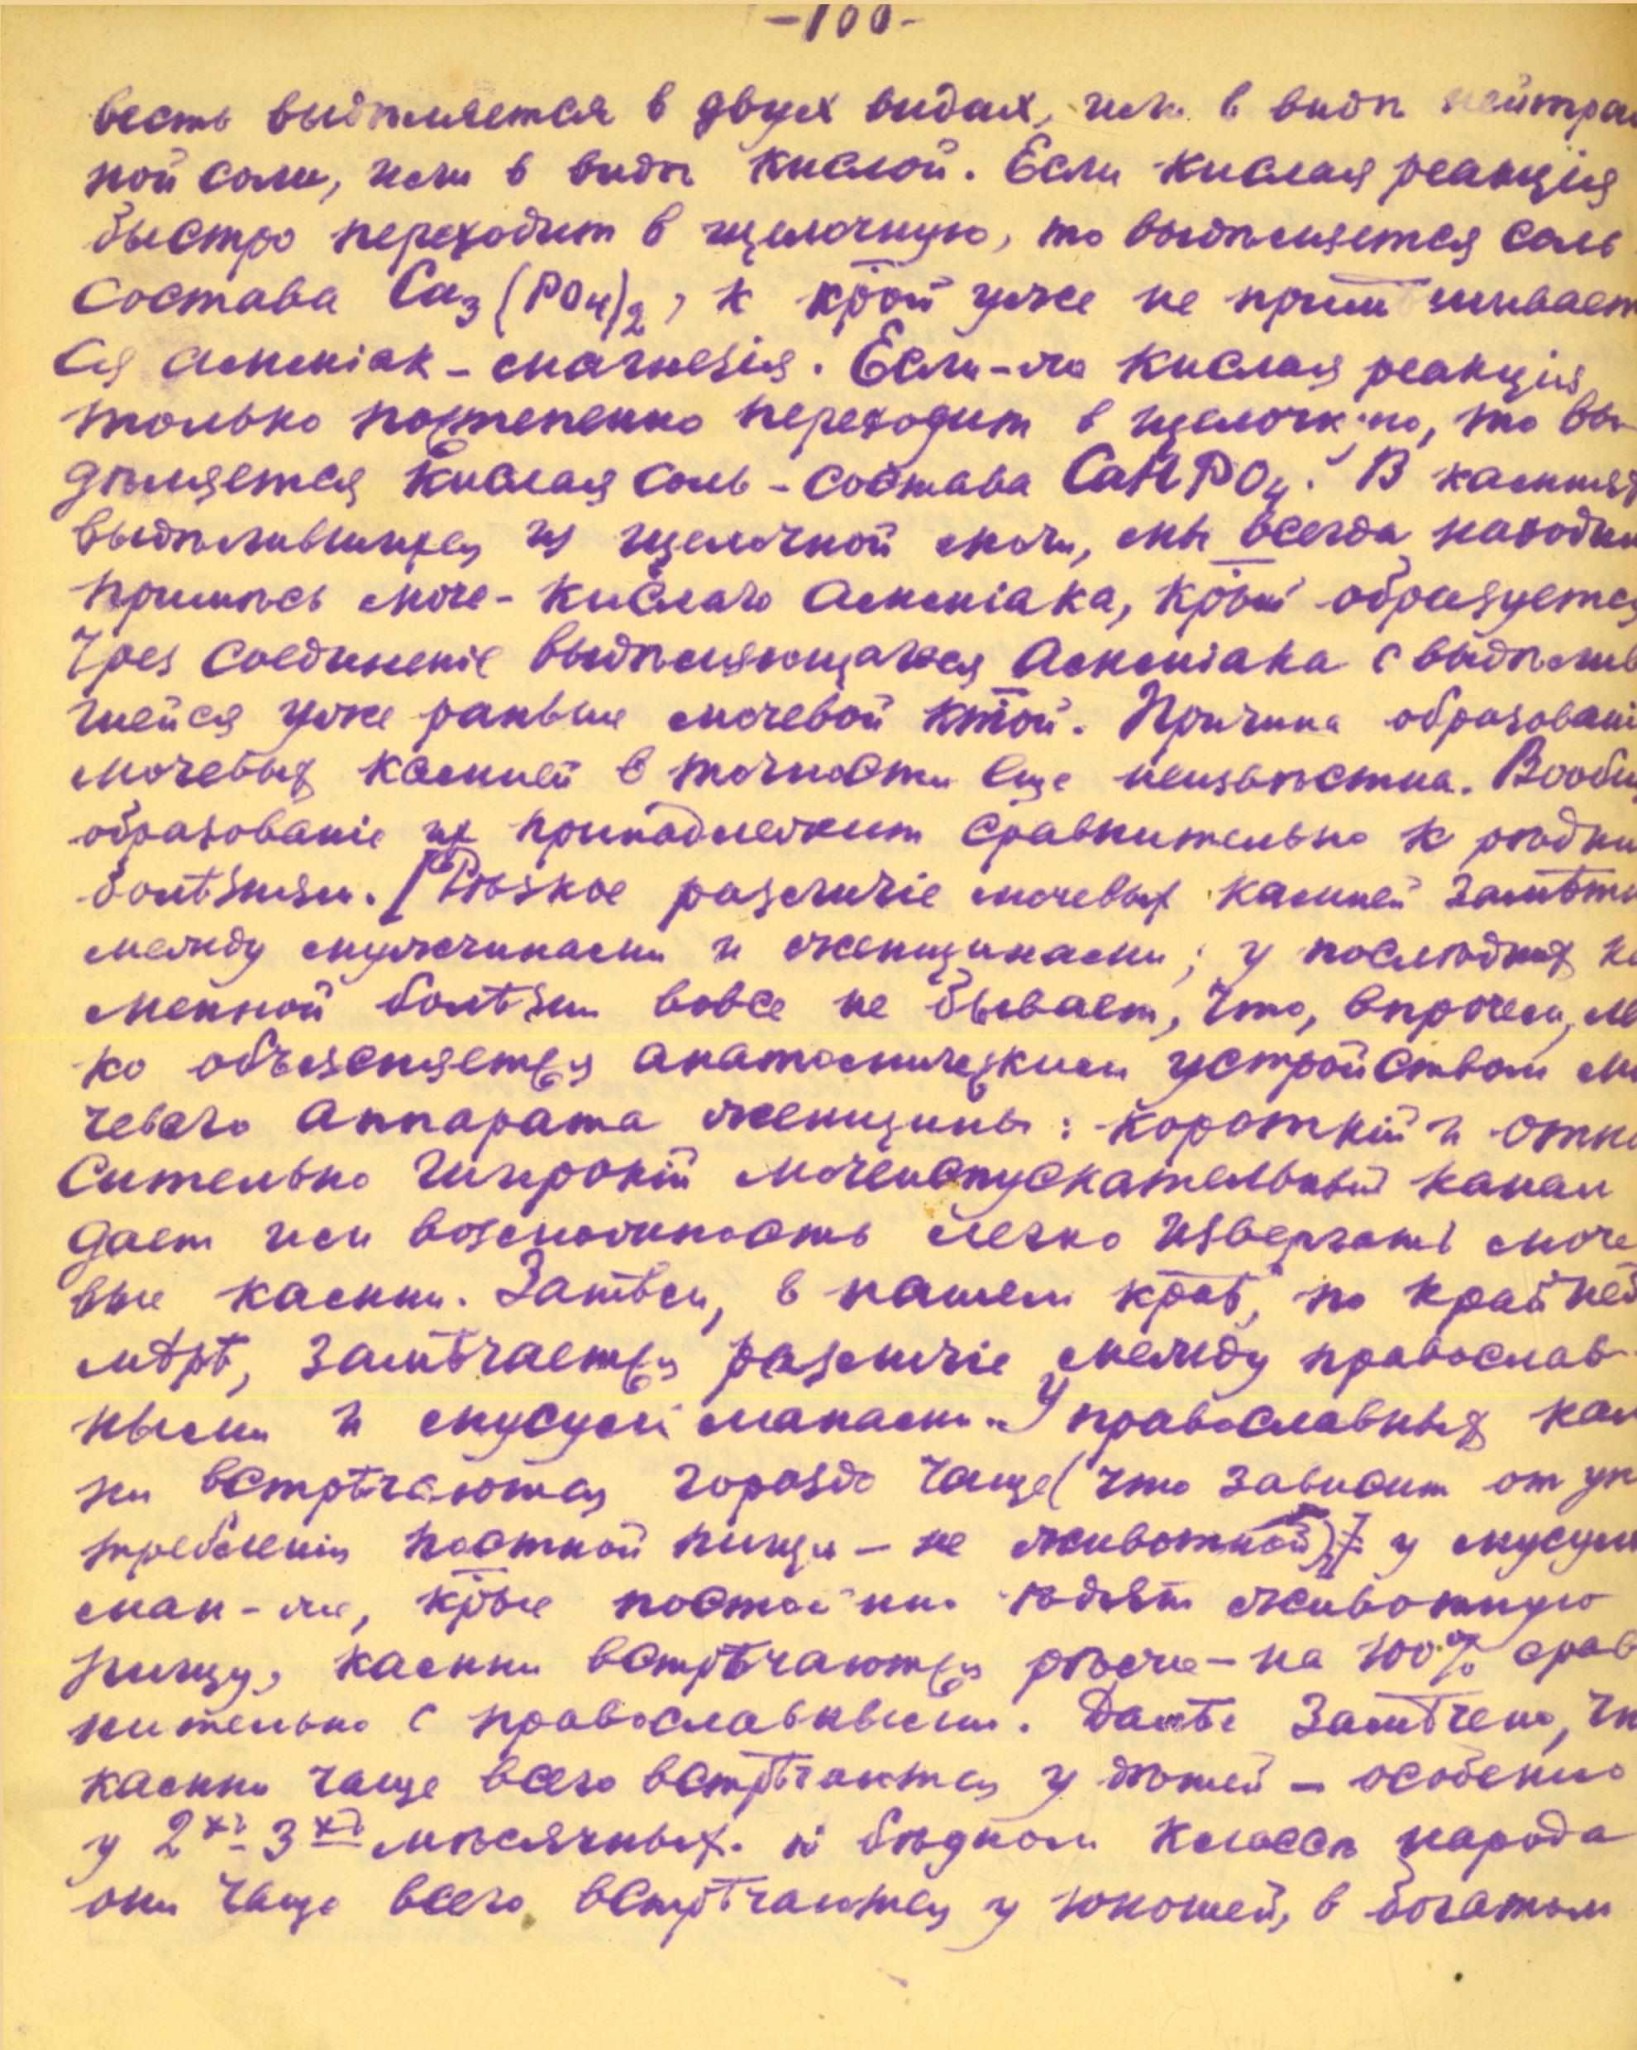 -100-
весть выдѣляется в двух видах, или в видѣ нейтрал
ной соли, или в видѣ кислой. Если кислая реакція
быстро переходит в щелочную, то выдѣляется соль
состава Ca₃(PO₄)₂, к крой уже не примѣшивает
ся амміак-магнезія. Если-же кислая реакція
только постепенно переходит в щелочную, то вы-
дѣляется кислая соль - состава CaHPO₄. В камнях
выдѣлившихся из щелочной мочи, мы всегда находим
примѣсь моче-кислаго амміака, крый образуется
чрез соединеніе выдѣляющагося амміака с выдѣлив
шейся уже раньше мочевой ктой. Причина образовані
мочевых камней в точности еще неизвѣстна. Вообщ
образованіе их принадлежит сравнительно к рѣдки
болѣзням. [Рѣзкое различіе мочевых камней замѣтн
между мужчинами и женщинами; у послѣдних ка
менной болѣзни вовсе не бывает, что, впрочем, ле
ко объясняется анатомическим устройством мо
чеваго аппарата женщины: короткій и отно
сительно широкій мочеиспускательный канал
дает им возможность легко извергать моче
вые камни. Затѣм, в нашем краѣ, по крайней
мѣрѣ, замѣчается различіе между православ-
ными и мусульманами. У православных кам
ни встрѣчаются гораздо чаще (что зависит от уп
требленія постной пищи - не животной); у мусуль
ман-же, крые постоянно ѣдят животную
пищу, камни встрѣчаются рѣже - на 100% срав
нительно с православными. Далѣе замѣчено, чт
камни чаще всего встрѣчаются у дѣтей - особенно
у 2х-3х мѣсячных. В бѣдном классѣ народа
они чаще всего встрѣчаются у юношей, в богатом